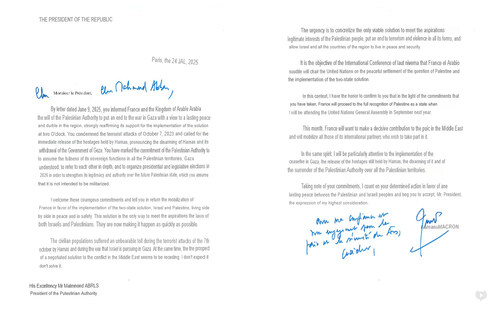 THE PRESIDENT OF THE REPUBLIC
Paris, the 24 JAL, 2025
Monsieur le President,
By letter dated June 9, 2025, you informed France and the Kingdom of Arabia Arabia
the will of the Palestinian Authority to put an end to the war in Gaza with a view to a lasting peace
and double in the region, strongly reaffirming its support for the implementation of the solution
at two O'clock. You condemned the terrorist attacks of October 7, 2023 and called for the
immediate release of the hostages held by Hamas, pronouncing the disarming of Hamas and its
withdrawal of the Government of Gaza. You have marked the commitment of the Palestinian Authority to
to assume the fullness of its sovereign functions in all the Palestinian territories, Gaza
understood, to refer to each other in depth, and to organize presidential and legislative elections in
2026 in order to strengthen its legitimacy and authority over the future Palestinian state, which you assume
that it is not intended to be militarized.
I welcome these courageous commitments and tell you in return the mobilization of
France in favor of the implementation of the two-state solution, Israel and Palestine, living side
by side in peace and in safety. This solution is the only way to meet the aspirations the laces of
both Israelis and Palestinians. They are now making it happen as quickly as possible.
The civilian populations suffered an unbearable toll during the terrorist attacks of the 7th
october by Hamas and during the war that Israel is pursuing in Gaza. At the same time, the prospect
of a negotiated solution to the conflict in the Middle East seems to be receding. I don't expect it
don't solve it.
His Excellency Mr Mahmwed ABRLS
President of the Palestinian Authority
The urgency is to concretize the only viable solution to meet the aspirations
legitimate interests of the Palestinian people, put an end to terrorism and violence in all its forms, and
allow Israel and all the countries of the region to live in peace and security.
It is the objective of the International Conference of
chair the United Nations on the peaceful settlement of the question of Palestine and
the implementation of the two-state solution.
In this context, I have the honor to confirm to you that in the light of the commitments that
you have taken, France will proceed to the full recognition of Palestine as a state when
I will be attending the United Nations General Assembly in September next year.
This month, France will want to make a decisive contribution to the peace in the Middle East
and will mobilize all those of its international partners who wish to take part in it.
In the same spirit, I will be particularly attentive to the implementation of the
ceasefire in Gaza, the release of the hostages still held by Hamas, the disarming of it and of
the surrender of the Palestinian Authority over all the Palestinian territories.
Taking note of your commitments, I count on your determined action in favor of sea
lasting peace between the Palestinian and Israeli peoples and beg you to accept, Mr. President,
the expression of my highest consideration.
MACRON